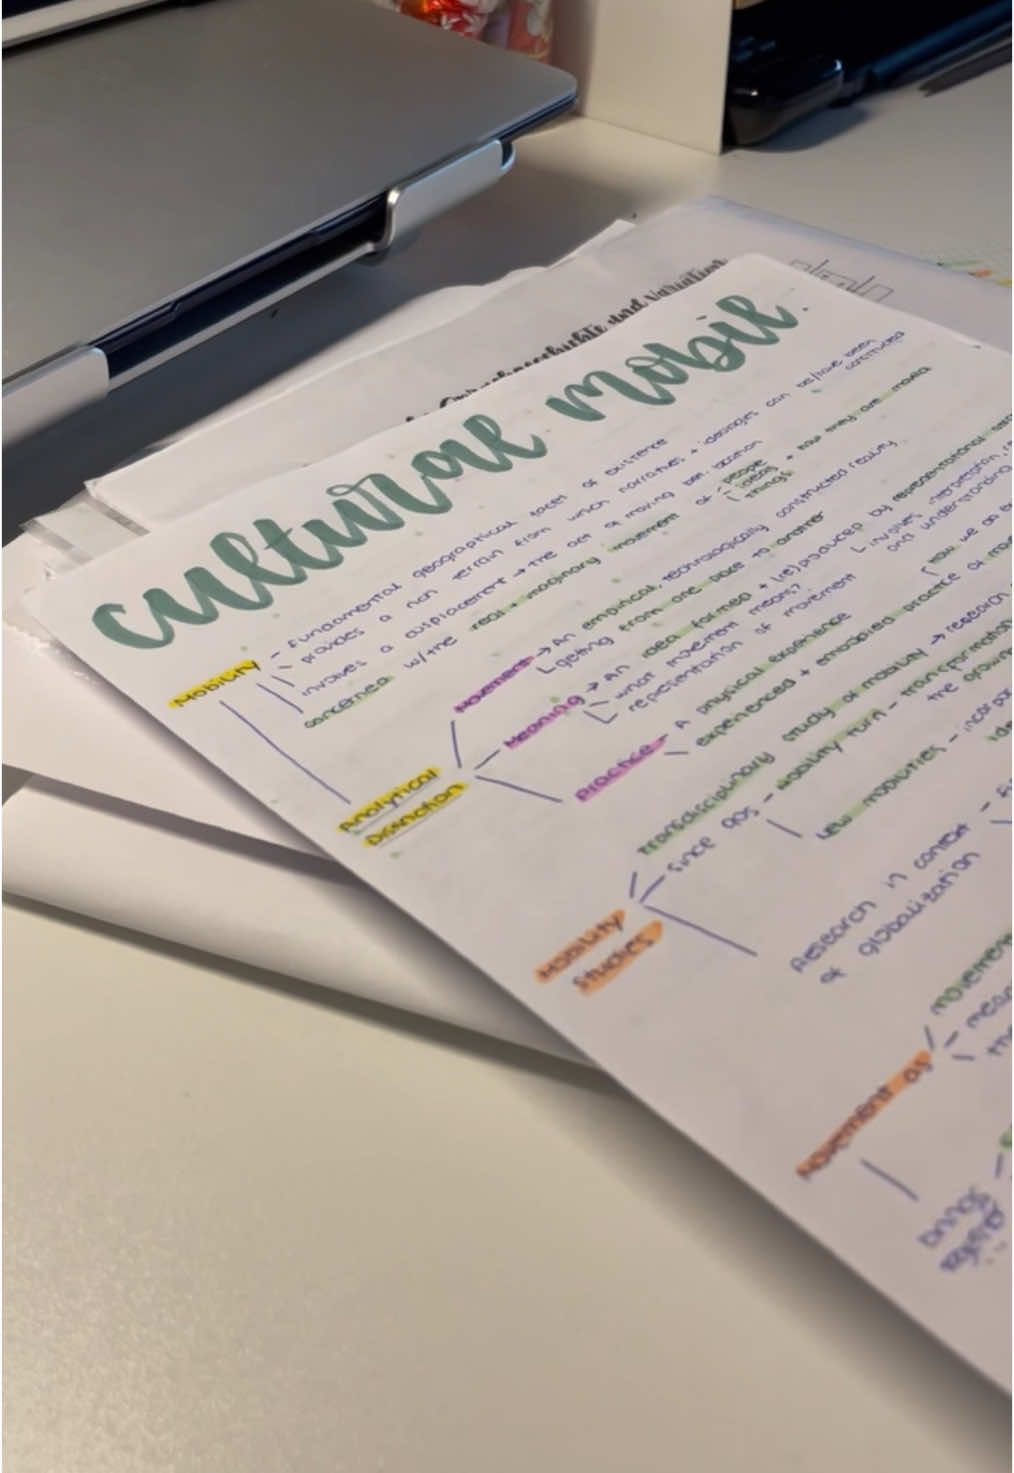 Sprachgeschichte und Variation
cultural mobil
Mobility
- Fundamental geographical facet of existence
- provides a rich terrain from which narratives + ideologies can be/have been constructed
involves a displacement → the act of moving btw. location
concerned w/the real + imaginary movement of people ideas things + how they are moved
Analytical Distinction
Movement → An empirical, technologically constructed reality
getting from one place to another
Meaning → An idea formed + (re)produced by representational
involves interpretation,
and understanding
what movement means?
representation of movement
Practice - A physical experience
experienced + embodied practice of
how we
Mobility Studies
transdisciplinary study of mobility → research
since 90s - Mobility turn - transformation
the
New mobilities -
Research in context of globalization
Movement as
movement
brings together